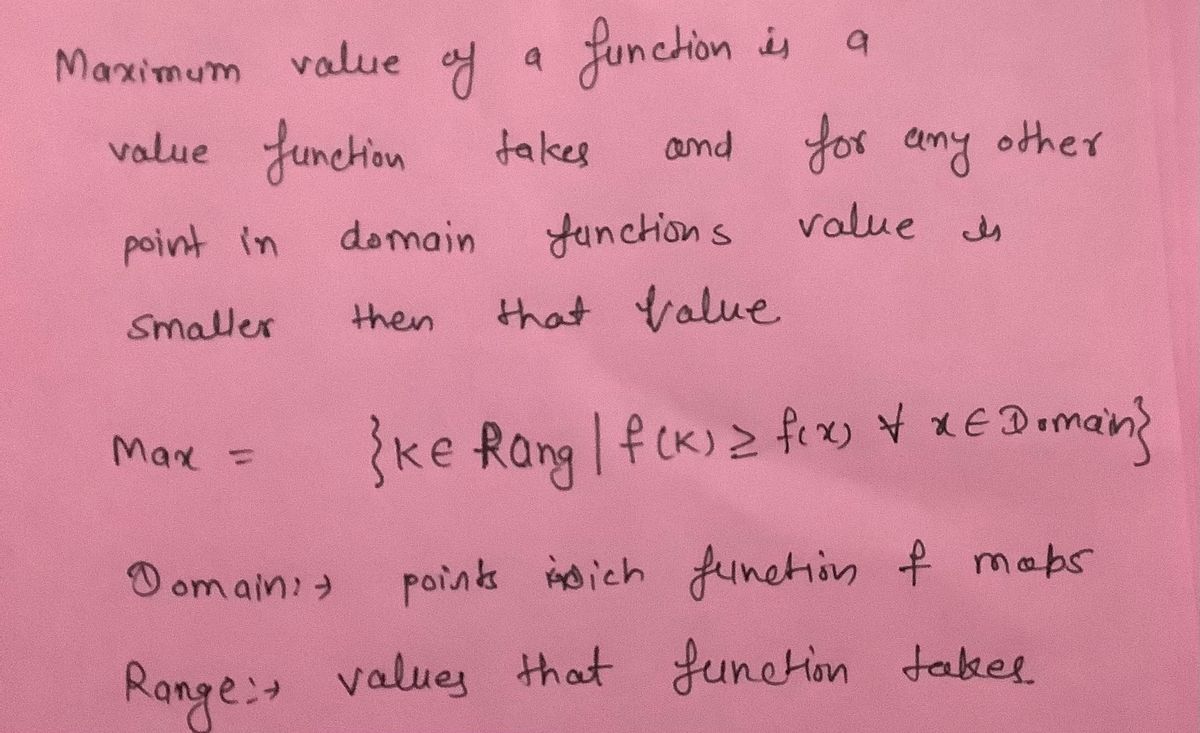 Maximum value of a function is a
value function takes and for any other
point in domain functions value is
smaller then that value
Max = }K∈ Rang | f(K) ≥ f(x) ∀ x ∈ Domain}
Domain:→ points wich function f maps
Range:→ values that function takes.